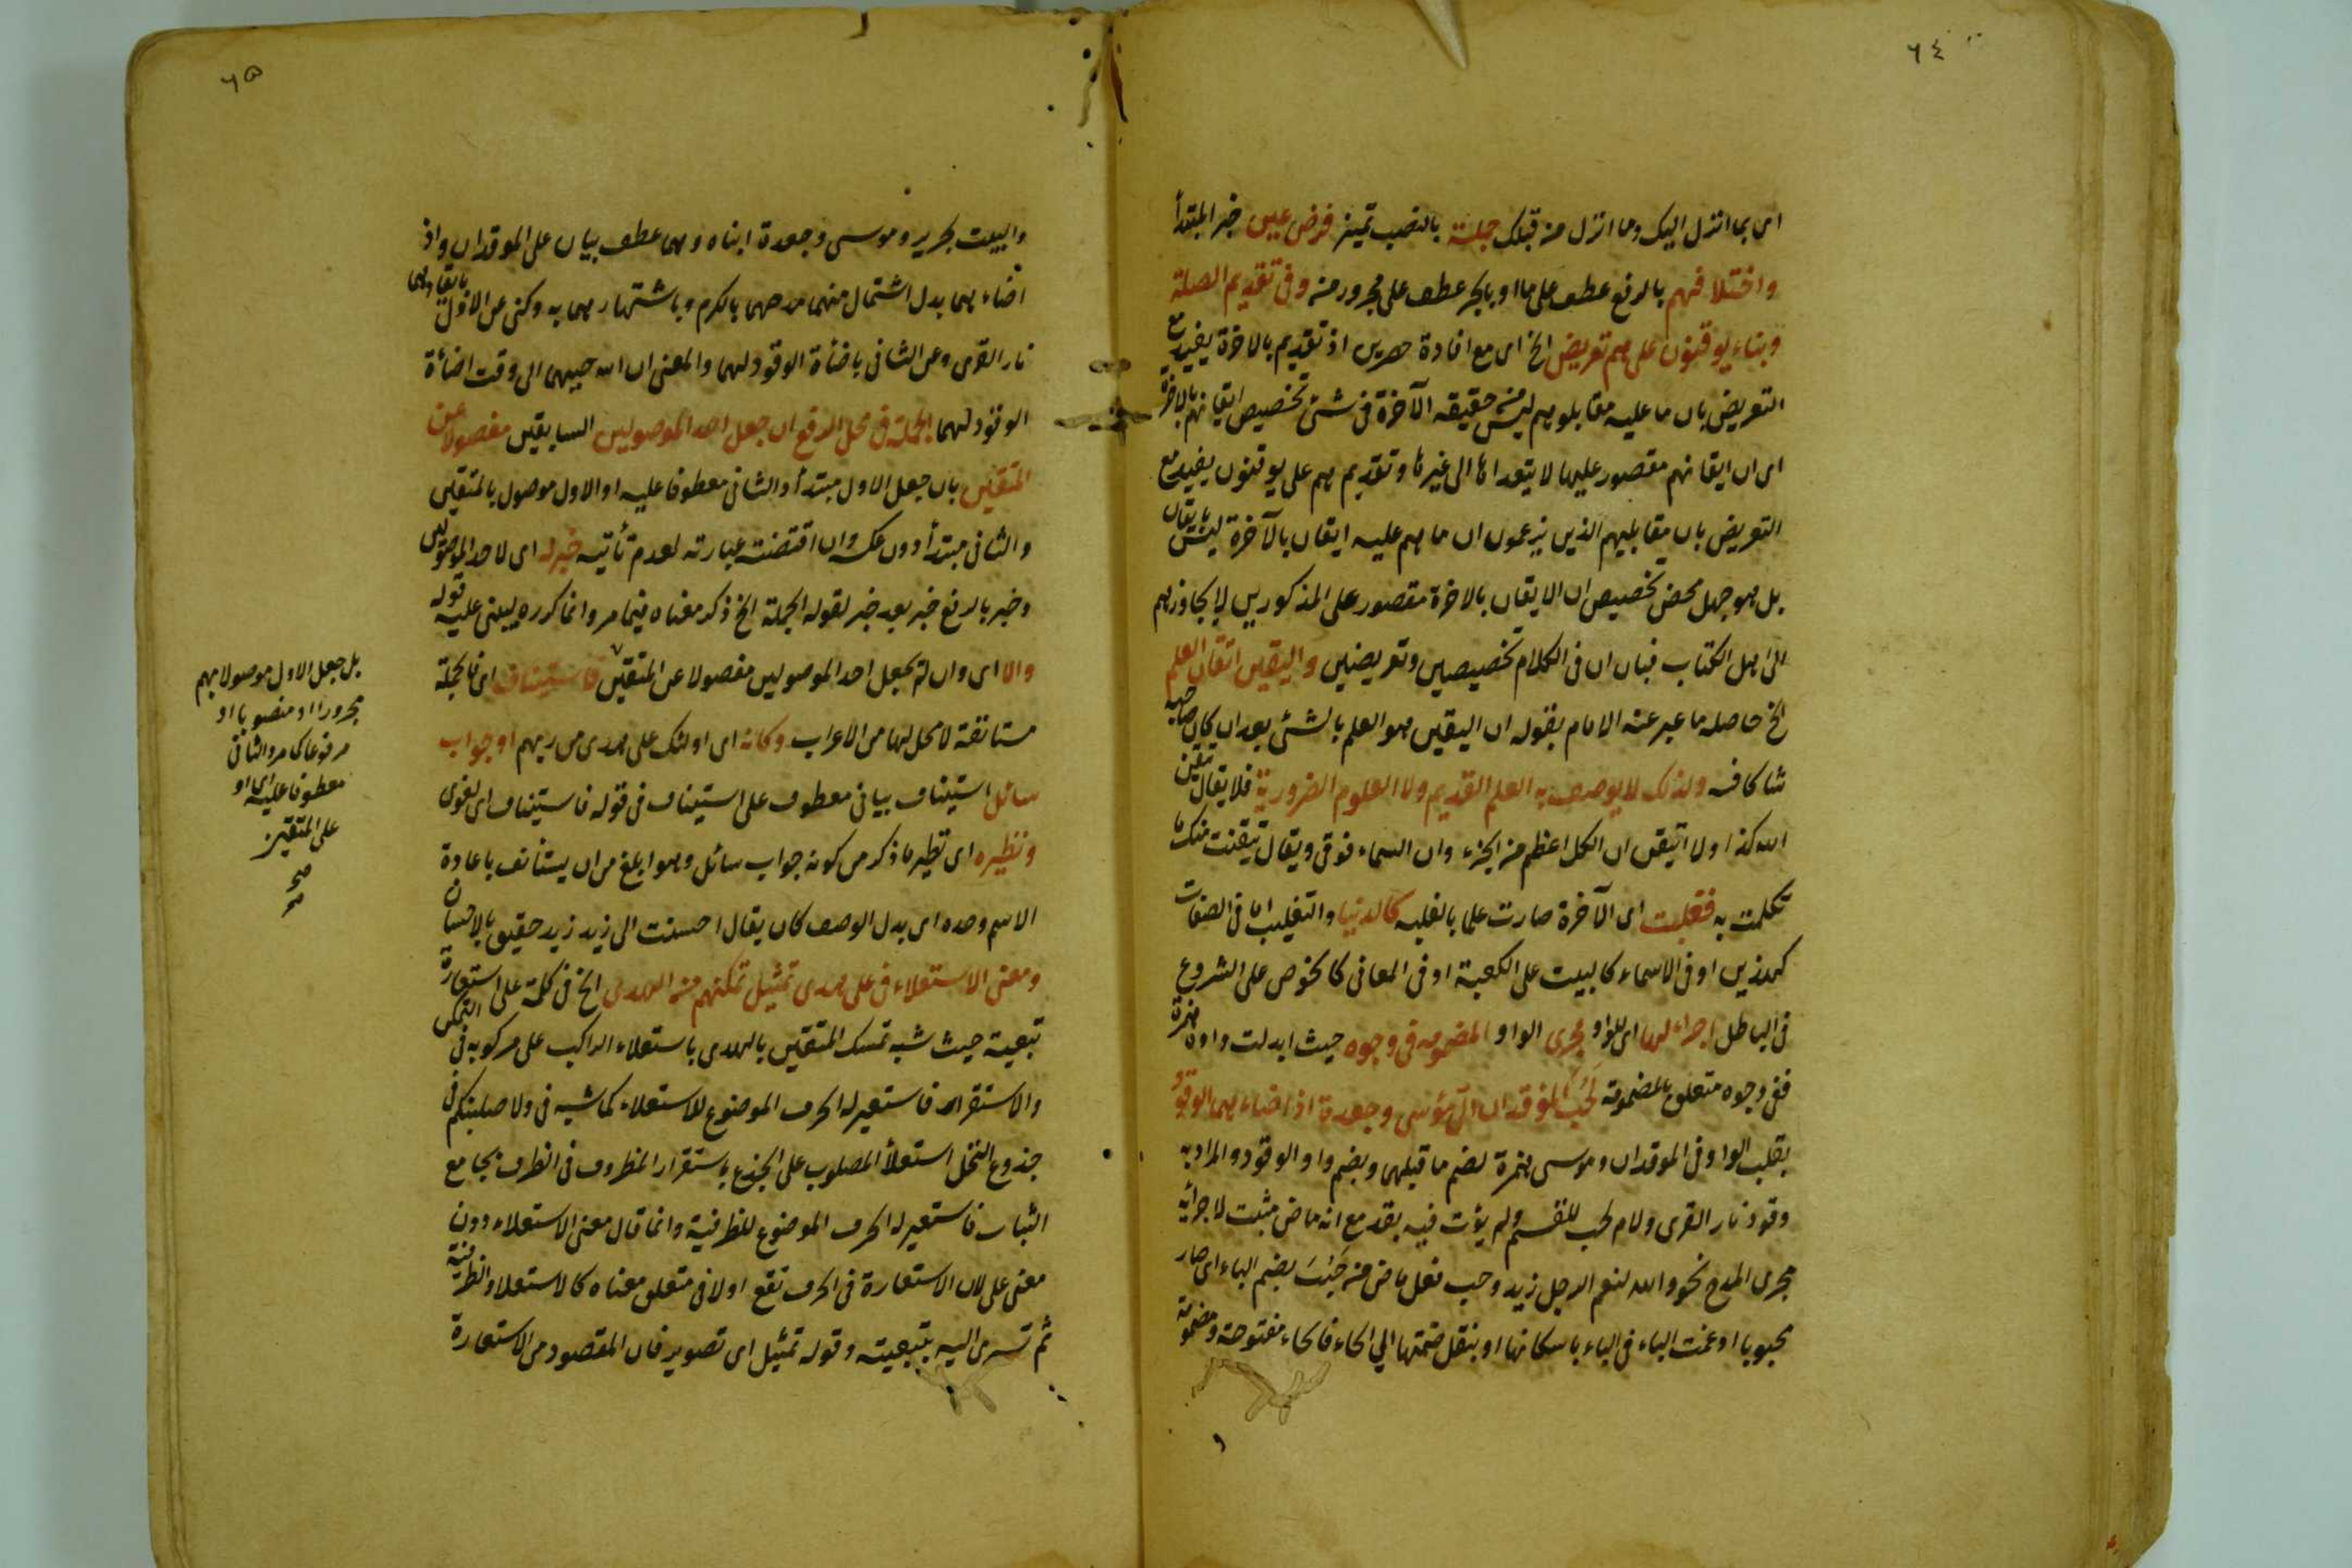 ٦٤
اى بما انزل اليك وما انزل من قبلك جملة بالنصب تميز فرض عين خبر المبتدأ
واختلافهم بالرفع عطف على ما او بالجر عطف على مجرور من وفى تقديم الصلة
وبناء يوقنون على هم تعريض الخ اى مع افادة حصرين اذ تقديم بالاخرة يفيد مع
التعريض بان ما عليه مقابلوهم ليس من حقيقه الآخرة فى شئ تخصيص ايقانهم بالاخرة
اى ان ايقانهم مقصور عليها لا يتعداها الى غيرها وتقديم هم على يوقنون يفيد مع
التعريض بان مقابليهم الذين يزعمون ان ما هم عليه ايقان بالآخرة ليس بايقان
بل هو جهل محض تخصيص ان الايقان بالاخرة مقصور على المذكورين لا يجاوزهم
الى اهل الكتاب فبان ان فى الكلام تخصيصين وتعريضين واليقين اتقان العلم
الخ حاصله ما عبر عنه الامام بقوله ان اليقين هو العلم بالشئ بعد ان كان صاحبه
شاكا فيه ولذلك لا يوصف به العلم القديم ولا العلوم الضرورية فلا يقال تيقن
الله كذا ولا اتيقن ان الكل اعظم من الجزء وان السماء فوقى ويقال تيقنت منك ما
تكلمت به فغلبت اى الآخرة صارت علما بالغلبه كالدنيا والتغليب اما فى الصفات
كهذين او فى الاسماء كالبيت على الكعبة او فى المعانى كالخوض على الشروع
فى الباطل اجراء لها اى للواو مجرى الواو المضمومه فى وجوه حيث ابدلت واوه همزة
ففى وجوه متعلق بالمضمومة لحب المؤقدان الىّ مؤسى وجعدة اذ اضاءهما الوقود
بقلب الواو فى الموقدان وموسى همزة لضم ما قبلهما وبضم واو الوقود والمراد به
وقود نار القرى ولام لحب للقسم ولم يؤت فيه بقد مع انه ماض مثبت لاجرائه
مجرى المدح نحو والله لنعم الرجل زيد وحب فعل ماض من حَبُبَ بضم الباء اى صار
محبوبا ادغمت الباء فى الباء باسكانها او بنقل ضمتها الى الحاء فالحاء مفتوحة ومضمومة
٦٥
والبيت لجرير وموسى وجعدة ابناه وهما عطف بيان على الموقدان واذ
اضاءهما بدل اشتمال منهما مدحهما بالكرم وباشتهارهما به وكنى عن الاول بايقادهما
نار القرى وعن الثانى باضأة الوقود لهما والمعنى ان الله حببهما الى وقت اضأة
الوقود لهما الجملة فى محل الرفع ان جعل احد الموصولين السابقين مفصولا عن
المتقين بان جعل الاول مبتدأ والثانى معطوفا عليه او الاول موصول بالمتقين
والثانى مبتدأ دون عكسه وان اقتضت عبارته لعدم تأتيه خبر له اى لاحد الموصولين
وخبر بالرفع خبر بعد خبر لقوله الجملة الخ ذكر معناه فيما مر وانما كرره ليبنى عليه قوله
والا اى وان لم يجعل احد الموصولين مفصولا عن المتقين فاستيناف اى فالجملة
مستانفة لا محل لها من الاعراب وكانه اى اولئك على هدى من ربهم او جواب
سائل استيناف بيانى معطوف على استيناف فى قوله فاستيناف اى لغوى
ونظيره اى نظير ما ذكر من كونه جواب سائل وهو ابلغ من ان يستأنف باعادة
الاسم وحده اى بدل الوصف كان يقال احسنت الى زيد زيد حقيق بالاحسان
ومعنى الاستعلاء فى على هدى تمثيل تمكنهم من الهدى الخ فى كلمة على استعارة
تبعية حيث شبه تمسك المتقين بالهدى باستعلاء الراكب على مركوبه فى التمكن
والاستقرار فاستعير له الحرف الموضوع للاستعلاء كما شبه فى ولاصلبنكم فى
جذوع النخل استعلأ المصلوب على الجذع باستقرار المظروف فى الظرف بجامع
الثبات فاستعير له الحرف الموضوع للظرفية وانما قال معنى الاستعلاء دون
معنى على لان الاستعارة فى الحرف تقع اولا فى متعلق معناه كالاستعلاء والظرفية
ثم تسرى اليه بتبعيته وقوله تمثيل اى تصوير فان المقصود من الاستعارة
بل جعل الاول موصولا بهم
مجرورا او منصوبا او
مرفوعا كما مر والثانى
معطوفا عليه او
على المتقين
صح